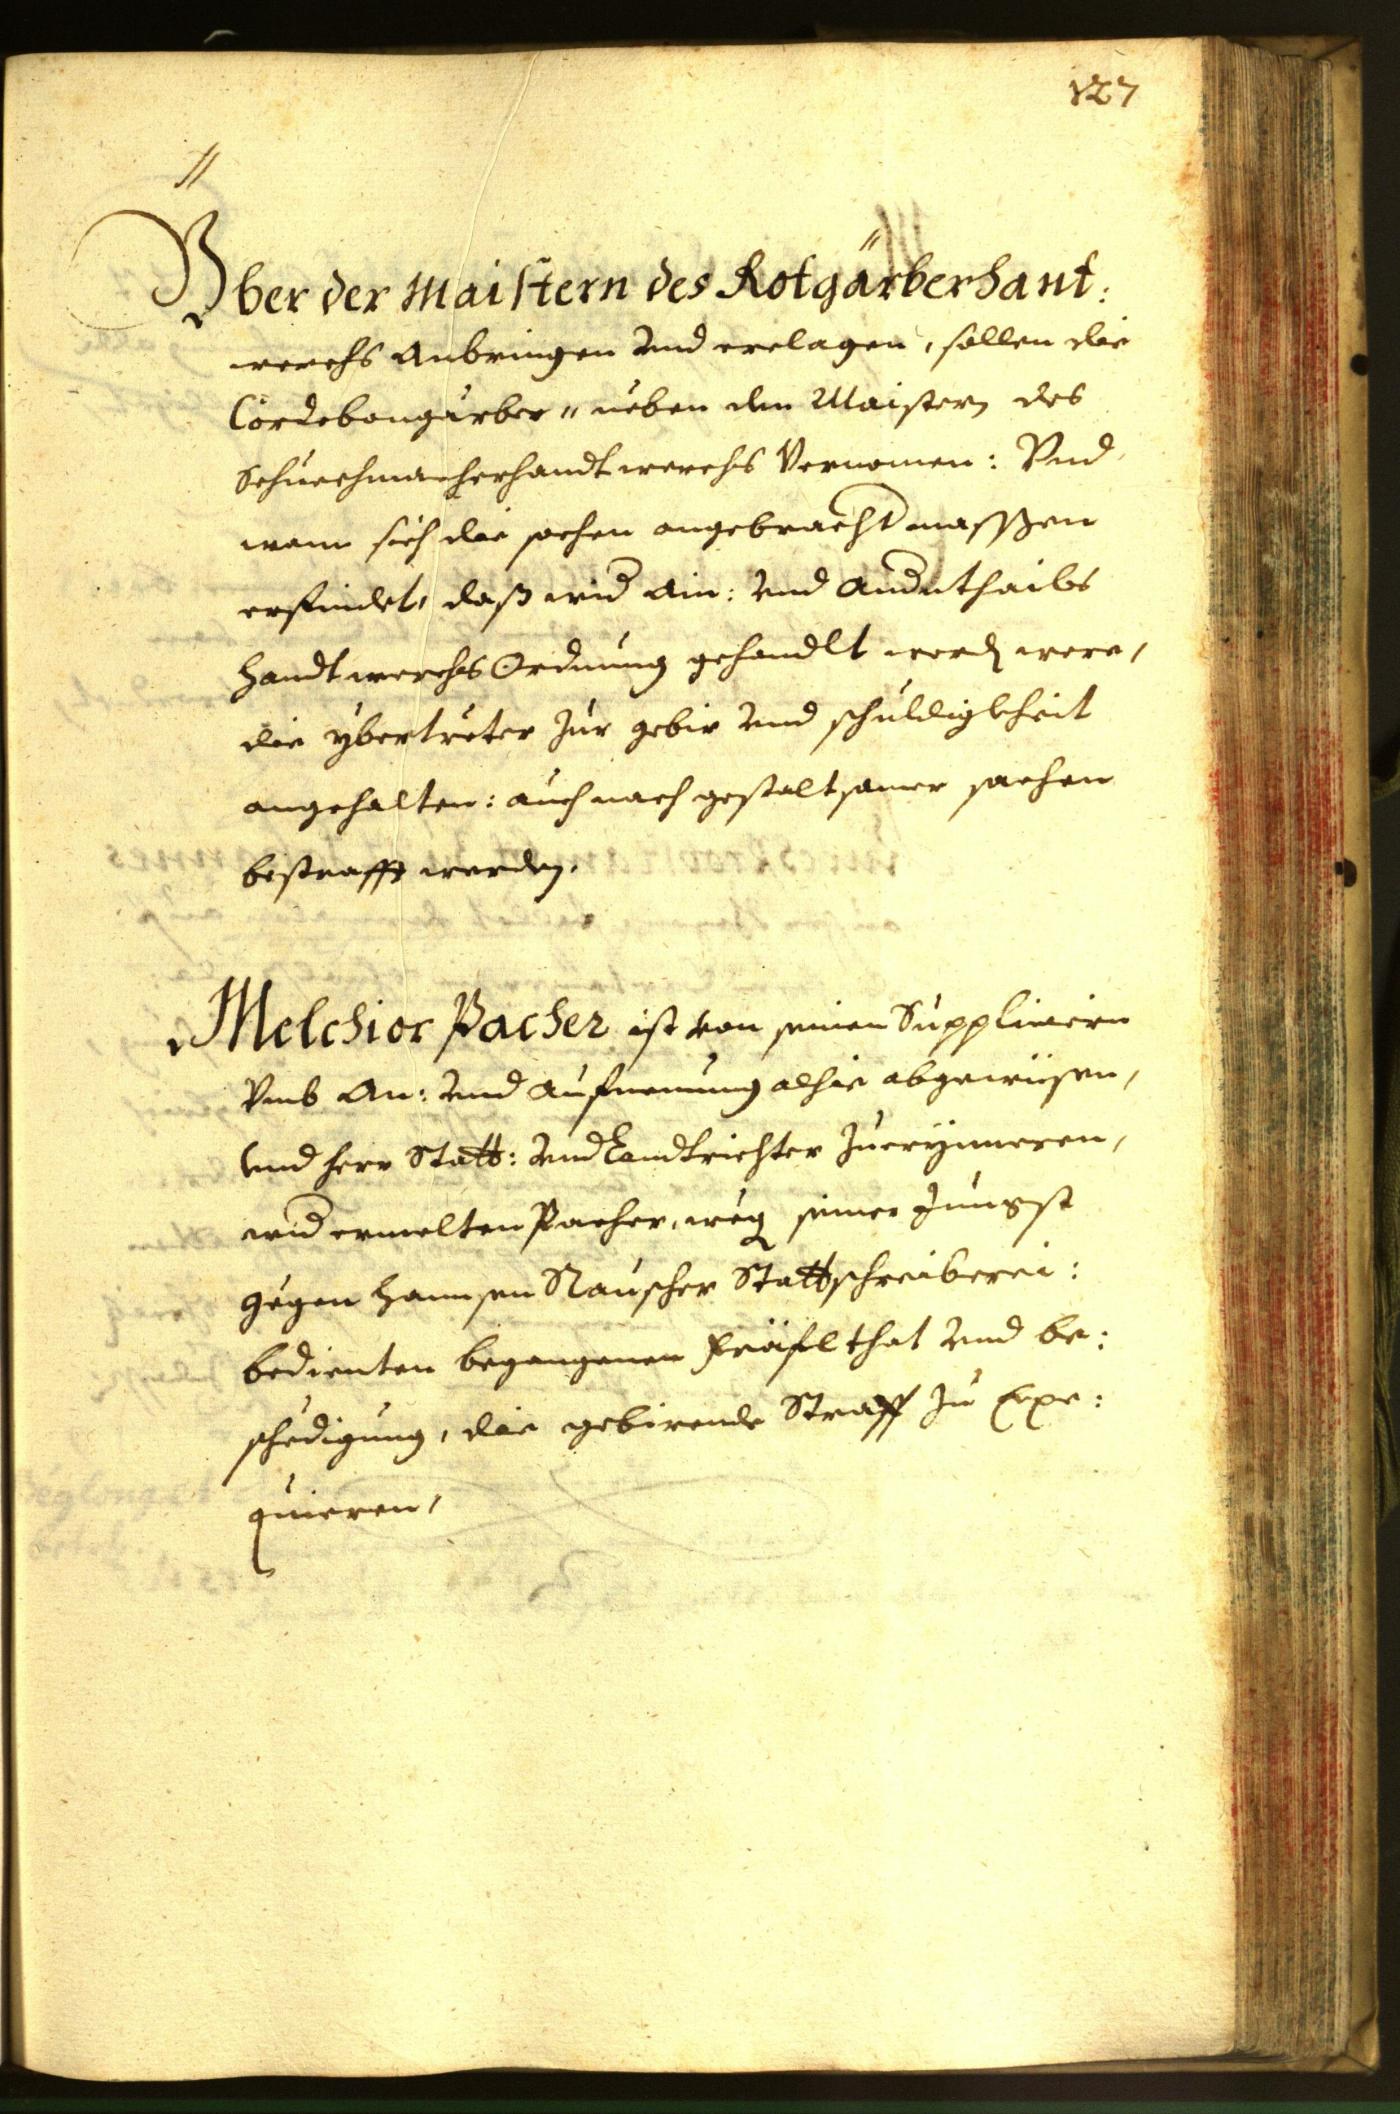 127
Vber der Maistern des Rotgärberhant:
werchs Anbringen vnd erclagen, sollen die
Cordebongärber neben den Maistern des
Schuechmacherhandtwerchs Vernomen: Vnd
wann sich die sachen angebrachtmassßen
erfindet, daß wid Ain: vnd Andnthails
Handtwerchs Ordnung gehandlt word were,
die ybertreter zur gebir vnd schuldigkheit
angehalten: auch nach gestaltsamer sachen
bestrafft werden.
Melchior Pacher ist von seinen Suppliciern
Vmb An: vnd Aufnemung alhie abgewisen,
Vnd herr Statt: vnd Landtrichter zuerynneren,
wid ermelten Pacher, weg seiner Jungst
gegen Hannsen Nauscher Stattschreiberei:
bedienten begangenen fräfl that vnd be:
schedigung, die gebirende Straff zu Exe:
quieren,